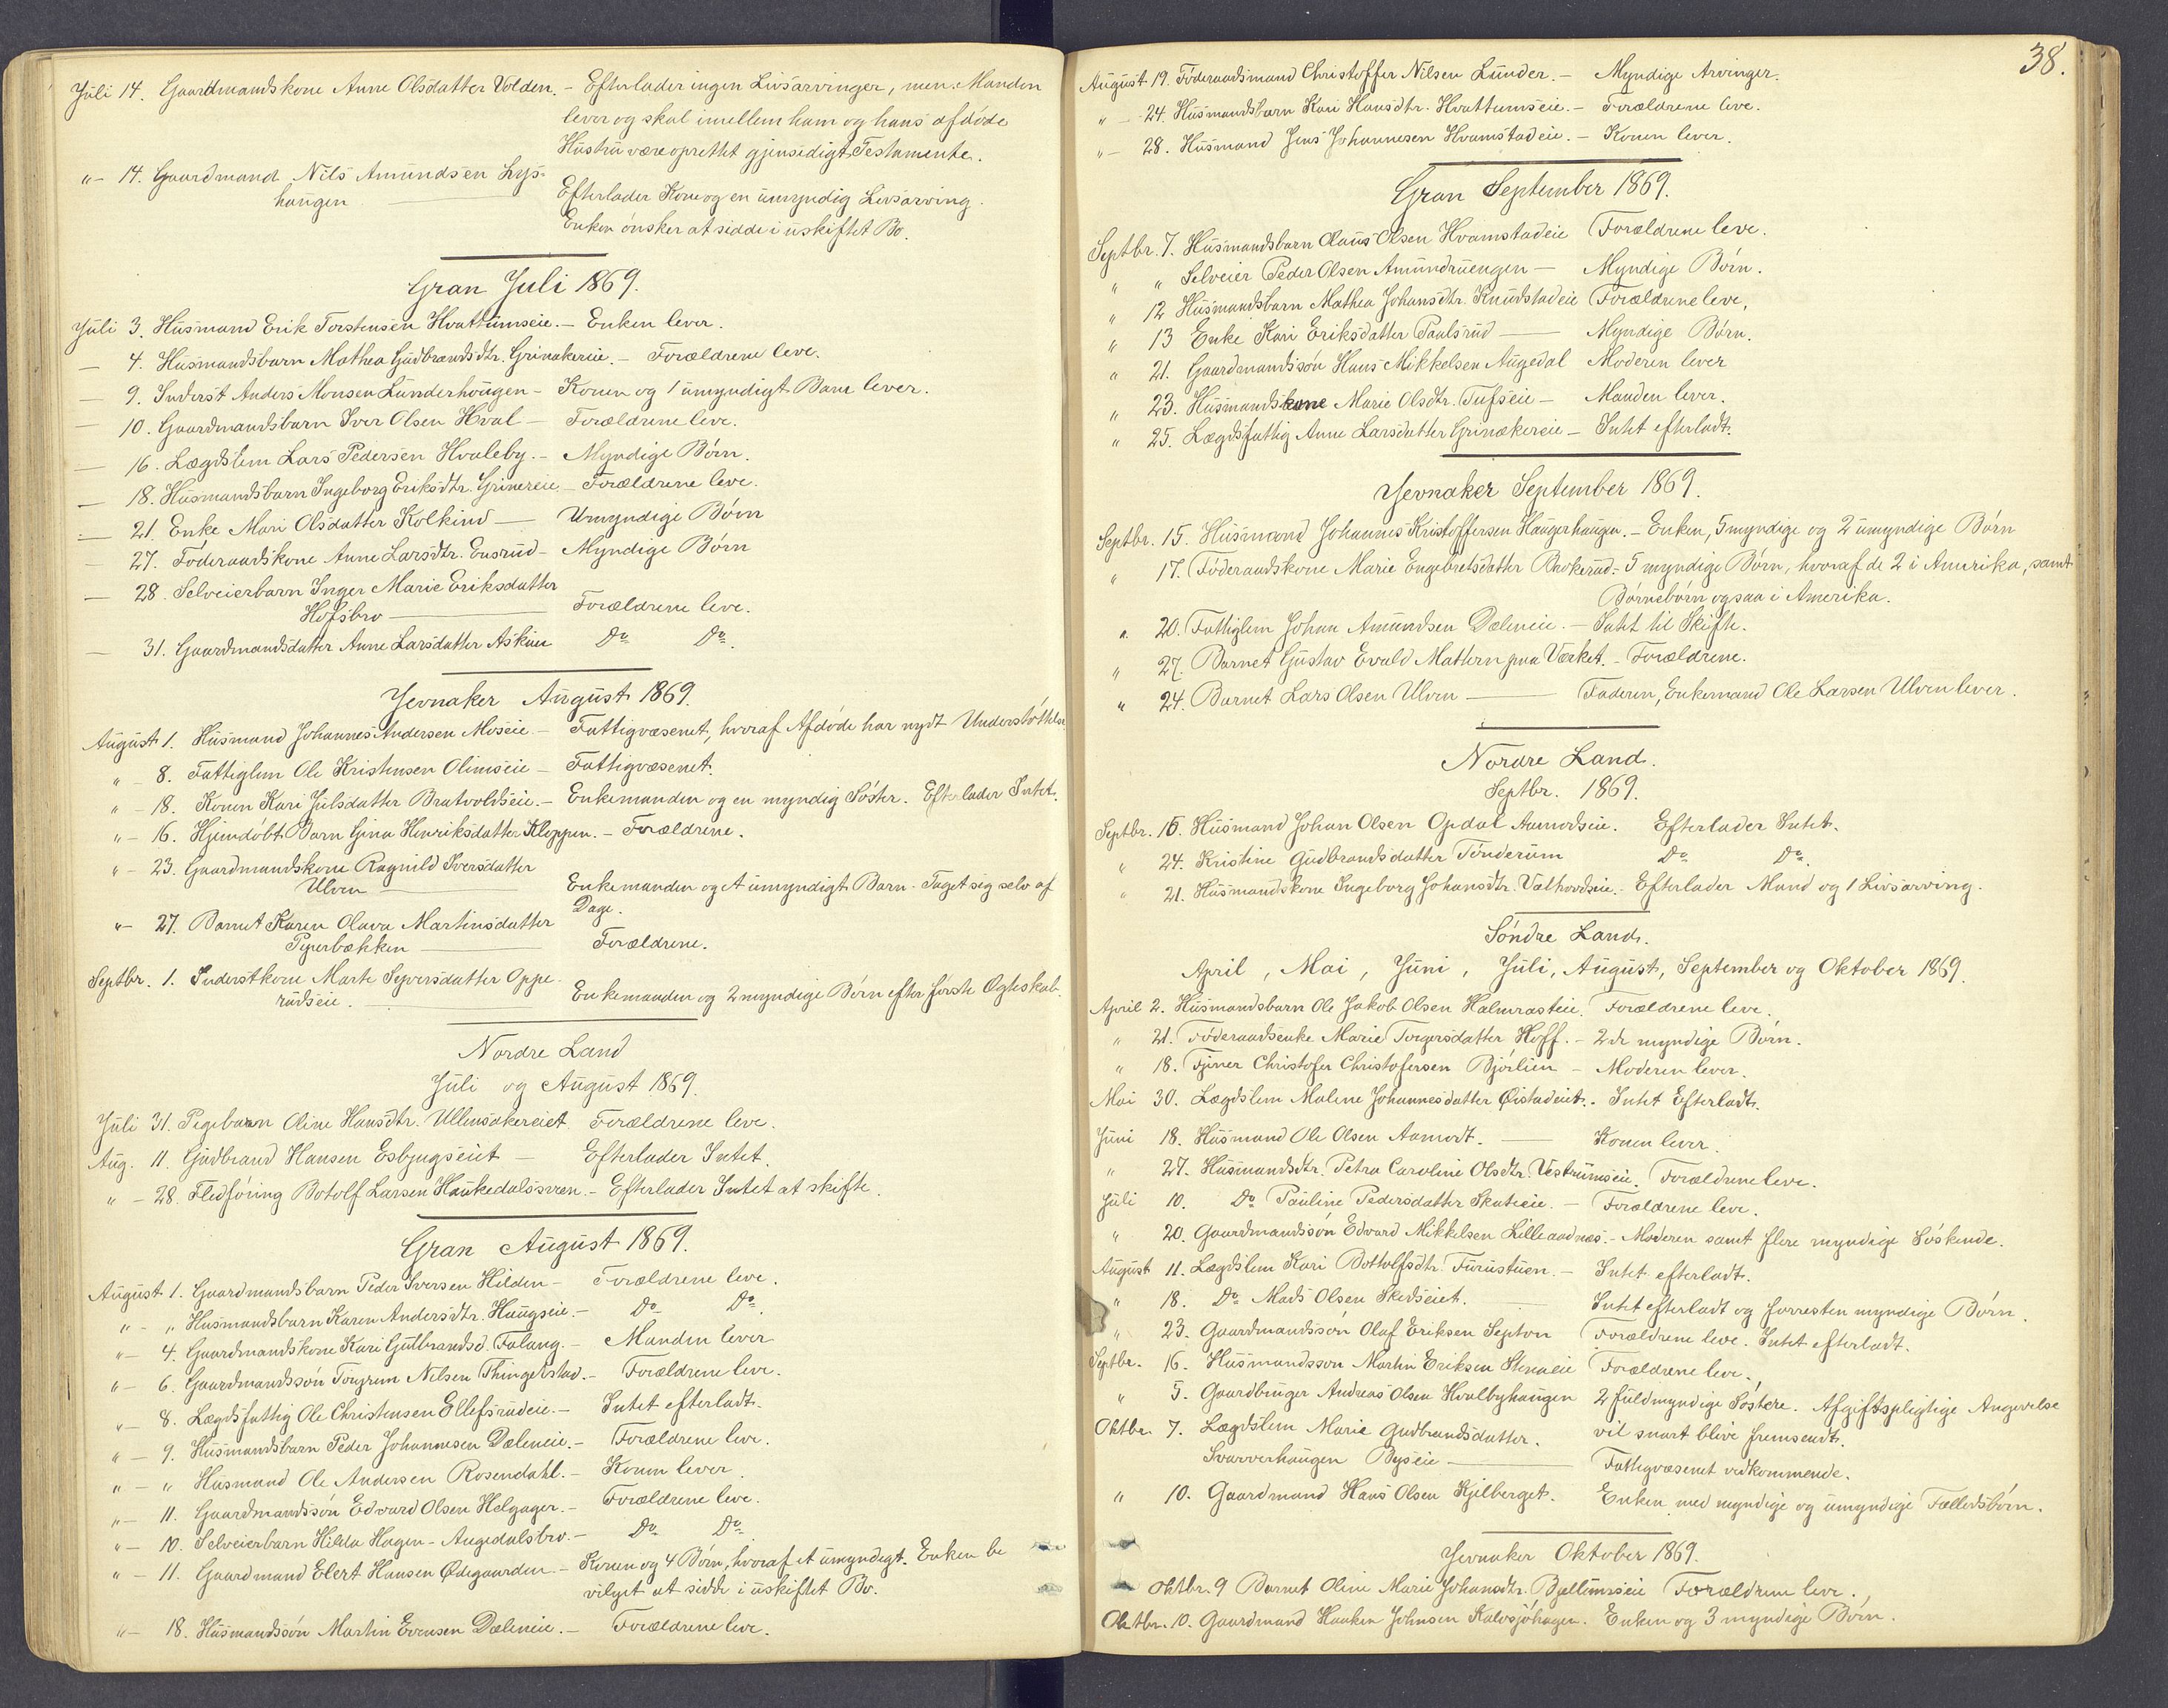 Juli 14. Gaardmandskone Anne Olsdatter Volden. - Efterlader ingen Livsarvinger, men Manden
lever og skal imellem ham og hans afdøde
Hustru være oprettet gjensidigt Testamente.
"- 14. Gaardmand Nils Amundsen Lys-
haugen — Efterlader Kone og en umyndig Livsarving.
Enken ønsker at sidde i uskiftet Bo.
Gran Juli 1869.
Juli 3. Husmand Erik Torstensen Hvattumseie. - Enken lever.
— 4. Husmandsbarn Mathea Gudbrandsdtr. Grinakereie. - Forældrene leve.
— 9. Inderst Anders Monsen Lunderhougen - Konen og 1 umyndigt Barn lever.
— 10. Gaardmandsbarn Iver Olsen Hval - Forældrene leve.
— 16. Lægdslem Lars Pedersen Hvaleby. - Myndige Børn.
— 18. Husmandsbarn Ingeborg Eriksdtr. Grinereie - Forældrene leve.
— 21. Enke Mari Olsdatter Kolkind — Umyndige Børn
— 27. Føderaadskone Anne Larsdtr. Ensrud - Myndige Børn
— 28. Selveierbarn Inger Marie Eriksdatter
Hofsbro — Forældrene leve.
— 31. Gaardmandsdatter Anne Larsdatter Askim Do Do.
Jevnaker August 1869.
August 1. Husmand Johannes Andersen Moseie - Fattigvæsenet, hvoraf Afdøde har nydt Understøttelse
" - 8. Fattiglem Ole Kristensen Olimseie - Fattigvæsenet.
" - 18. Konen Kari Julsdatter Bratvoldseie. - Enkemanden og en myndig Søster. Efterlader Intet.
" - 16. Hjemdøbt Barn Gina Henriksdatter Kloppen. - Forældrene.
" - 23. Gaardmandskone Ragnild Iversdatter
Ulven — Enkemanden og et umyndigt Barn - Taget sig selv af
Dage.
" - 27. Barnet Karen Olava Martinsdatter
Peperbækken — Forældrene.
Septbr. 1. Inderstkone Marte Syversdatter Oppe-
rudseie. — Enkemanden og 2 myndige Børn efter første Ægteskab.
Nordre Land
Juli og August 1869.
Juli 31. Pigebarn Oline Hansdtr. Ullensakereiet. Forældrene leve.
Aug. 11. Gudbrand Hansen Esbjugseiet — Efterlader Intet.
" - 28. Fledføring Botolf Larsen Haukedalssveen. - Efterlader Intet at skifte.
Gran August 1869.
August 1. Gaardmandsbarn Peder Iversen Hilden - Forældrene leve.
" - " Husmandsbarn Karen Andersdtr. Haugseie. - Do Do.
" - 4. Gaardmandskone Kari Gulbrandsd. Falang. - Manden lever
" - 6. Gaardmandssøn Torgrim Nilsen Thingelstad. - Forældrene leve.
" - 8. Lægdsfattig Ole Christensen Ellefsrudeie. - Intet efterladt.
" - 9. Husmandsbarn Peder Johannesen Dæleneie. - Forældrene leve.
" - " Husmand Ole Andersen Rosendahl. - Konen lever.
" - 11. Gaardmandssøn Edvard Olsen Helgager. - Forældrene leve.
" - 10. Selveierbarn Hilda Hagen - Augedalsbro. - Do Do
" - 11. Gaardmand Elert Hansen Ødegaarden. - Konen og 4 Børn, hvoraf et umyndigt. Enken be
vilget at sidde i uskiftet Bo.
" - 18. Husmandssøn Martin Evensen Dæleneie. - Forældrene leve.
38.
August 19. Føderaadsmand Christoffer Nilsen Lunder. - Myndige Arvinger.
" - 24. Husmandsbarn Kari Hansdtr. Hvattumseie. - Forældrene leve.
" - 28. Husmand Jens Johannesen Hvamstadeie. - Konen lever.
Gran September 1869.
Septbr. 7. Husmandsbarn Claus Olsen Hvamstadeie Forældrene leve.
" " Selveier Peder Olsen Amundruengen - Myndige Børn.
" 12 Husmandsbarn Mathea Johansdtr. Knudstadeie Forældrene leve,
" 13 Enke Kari Eriksdatter Paulsrud — Myndige Børn.
" 21. Gaardmandssøn Hans Mikkelsen Augedal Moderen lever
" 23. Husmandskone Marie Olsdtr. Tufseie - Manden lever.
" 25. Lægdsfattig Anne Larsdatter Grinakereie - Intet efterladt.
Jevnaker September 1869.
Septbr. 15. Husmand Johannes Kristoffersen Haugerhaugen. - Enken, 5 myndige og 2 umyndige Børn
" 17. Føderaadskone Marie Engebretsdatter Brokerud - 5 myndige Børn, hvoraf de 2 i Amerika, samt
Børnebørn ogsaa i Amerika.
" 20. Fattiglem Johan Amundsen Dæleneie. - Intet til Skifte.
" 27. Barnet Gustav Evald Mathern paa Værket. - Forældrene.
" 24. Barnet Lars Olsen Ulven — Faderen, Enkemand Ole Larsen Ulven lever.
Nordre Land.
Septbr. 1869.
Septbr. 15. Husmand Johan Olsen Opdal Aamodseie. Efterlader Intet.
" 24. Kristine Gudbrandsdatter Tønderum Do Do.
" 21. Husmandskone Ingeborg Johansdtr. Valhovdseie. - Efterlader Mand og 1 Livsarving.
Søndre Land.
April, Mai, Juni, Juli, August, September og Oktober 1869.
April 2. Husmandsbarn Ole Jakob Olsen Halmrasteie. Forældrene leve.
" 21. Føderaadsenke Marie Torgersdatter Hoff. - 2de myndige Børn.
" 18. Tjener Christofer Christofersen Bjørlien - Moderen lever.
Mai 30. Lægdslem Malene Johannesdatter Øistadeiet. - Intet Efterladt.
Juni 18. Husmand Ole Olsen Aamodt. — Konen lever.
" 27. Husmandsdtr. Petra Caroline Olsdtr. Vestrumseie. Forældrene leve.
Juli 10. Do Pauline Pedersdatter Skuteeie. - Forældrene leve.
" 20. Gaardmandssøn Edvard Mikkelsen Lilleaadnæs. - Moderen samt flere myndige Søskende.
August 11. Lægdslem Kari Bottolfsdtr. Furustuen. - Intet efterladt.
" 18. Do Mads Olsen Skedseiet. — Intet efterladt og forresten myndige Børn.
" 23. Gaardmandssøn Olaf Eriksen Septon Forældrene leve. Intet efterladt.
Septbr. 16. Husmandssøn Martin Eriksen Steneeie Forældrene leve.
" 5. Gaardbruger Andreas Olsen Hvalbyhaugen 2 fuldmyndige Søstere. Afgiftspligtige Angivelse
vil snart blive fremsendt.
Oktbr. 7. Lægdslem Marie Gudbrandsdatter.
Svarverhaugen Byseie — Fattigvæsenet vedkommende.
" 10. Gaardmand Hans Olsen Kjelberget. Enken med myndige og umyndige Fælledsbørn.
Jevnaker Oktober 1869.
Oktbr. 9 Barnet Oline Marie Johansdtr. Bjellumseie Forældrene leve.
Oktbr. 10. Gaardmand Haaken Johnsen Kalvsjøhagen. Enken og 3 myndige Børn.